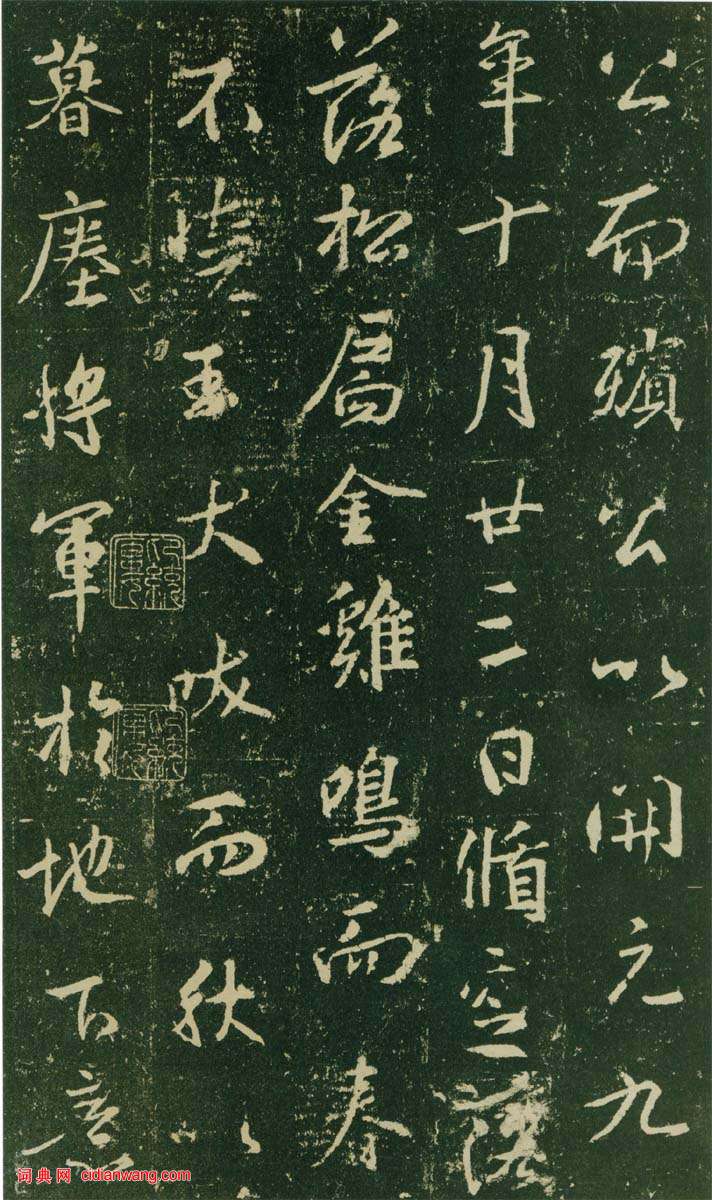 公而殯公以開元九
年十月廿三日循空落
落松扃金雞鳴而春
不曉玉犬吠而秋
暮塵將軍於地下
词典网 cidianwang.com